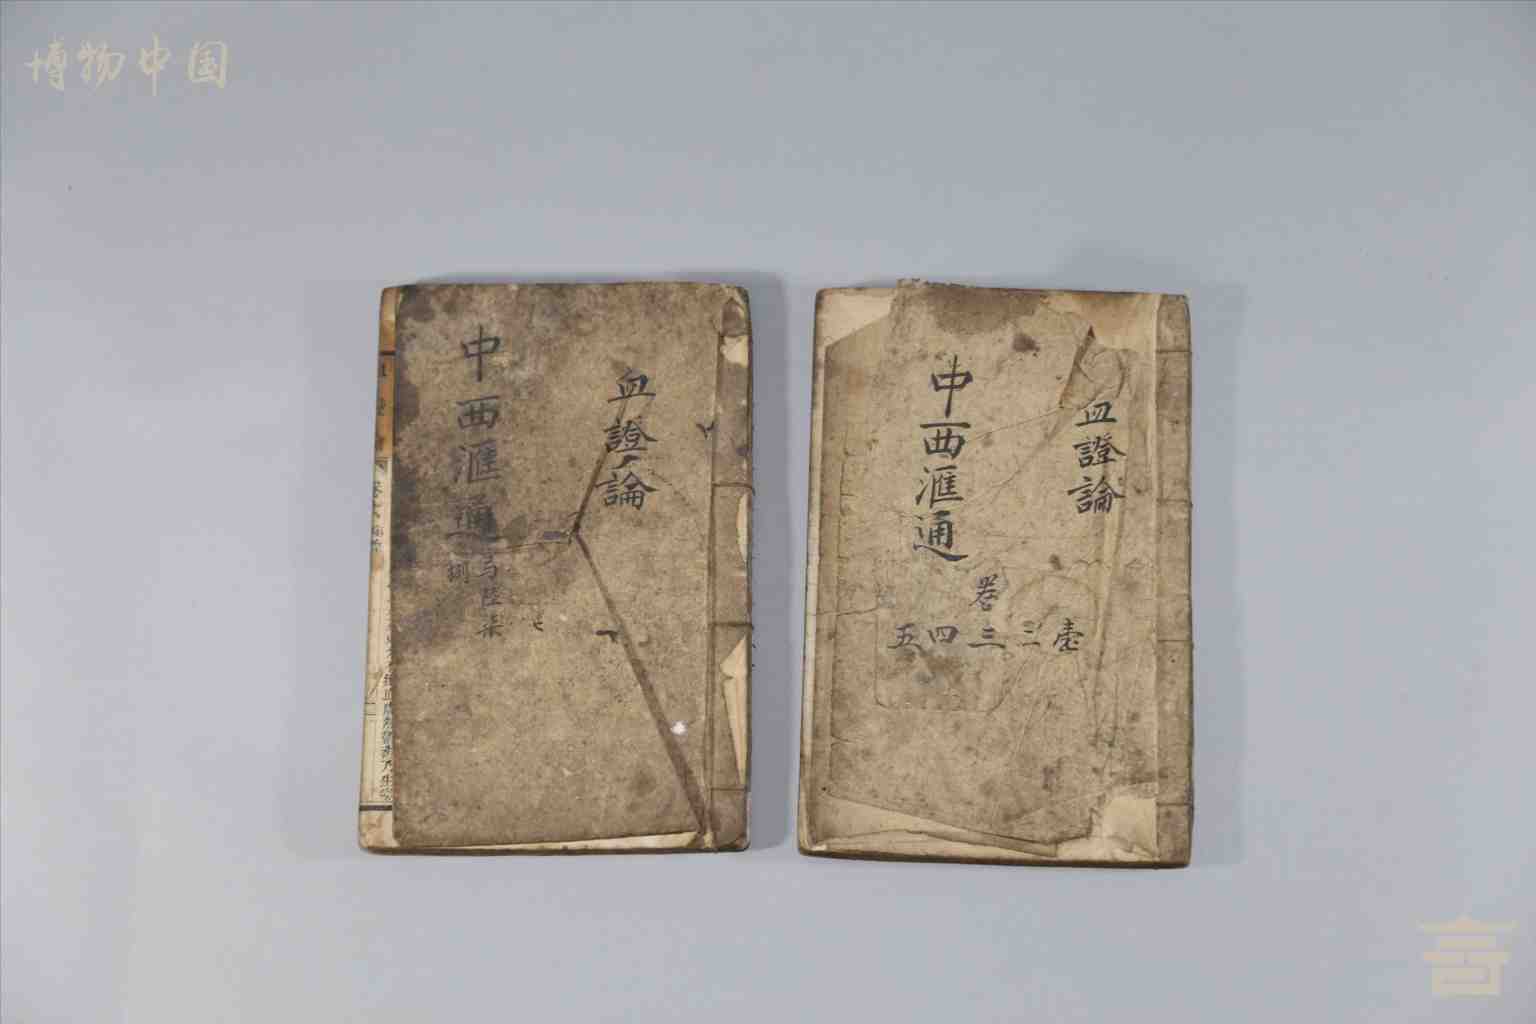 博物中国
血證論
中西滙通
陸柒
捌
血證論
中西滙通
卷
壹二三四五